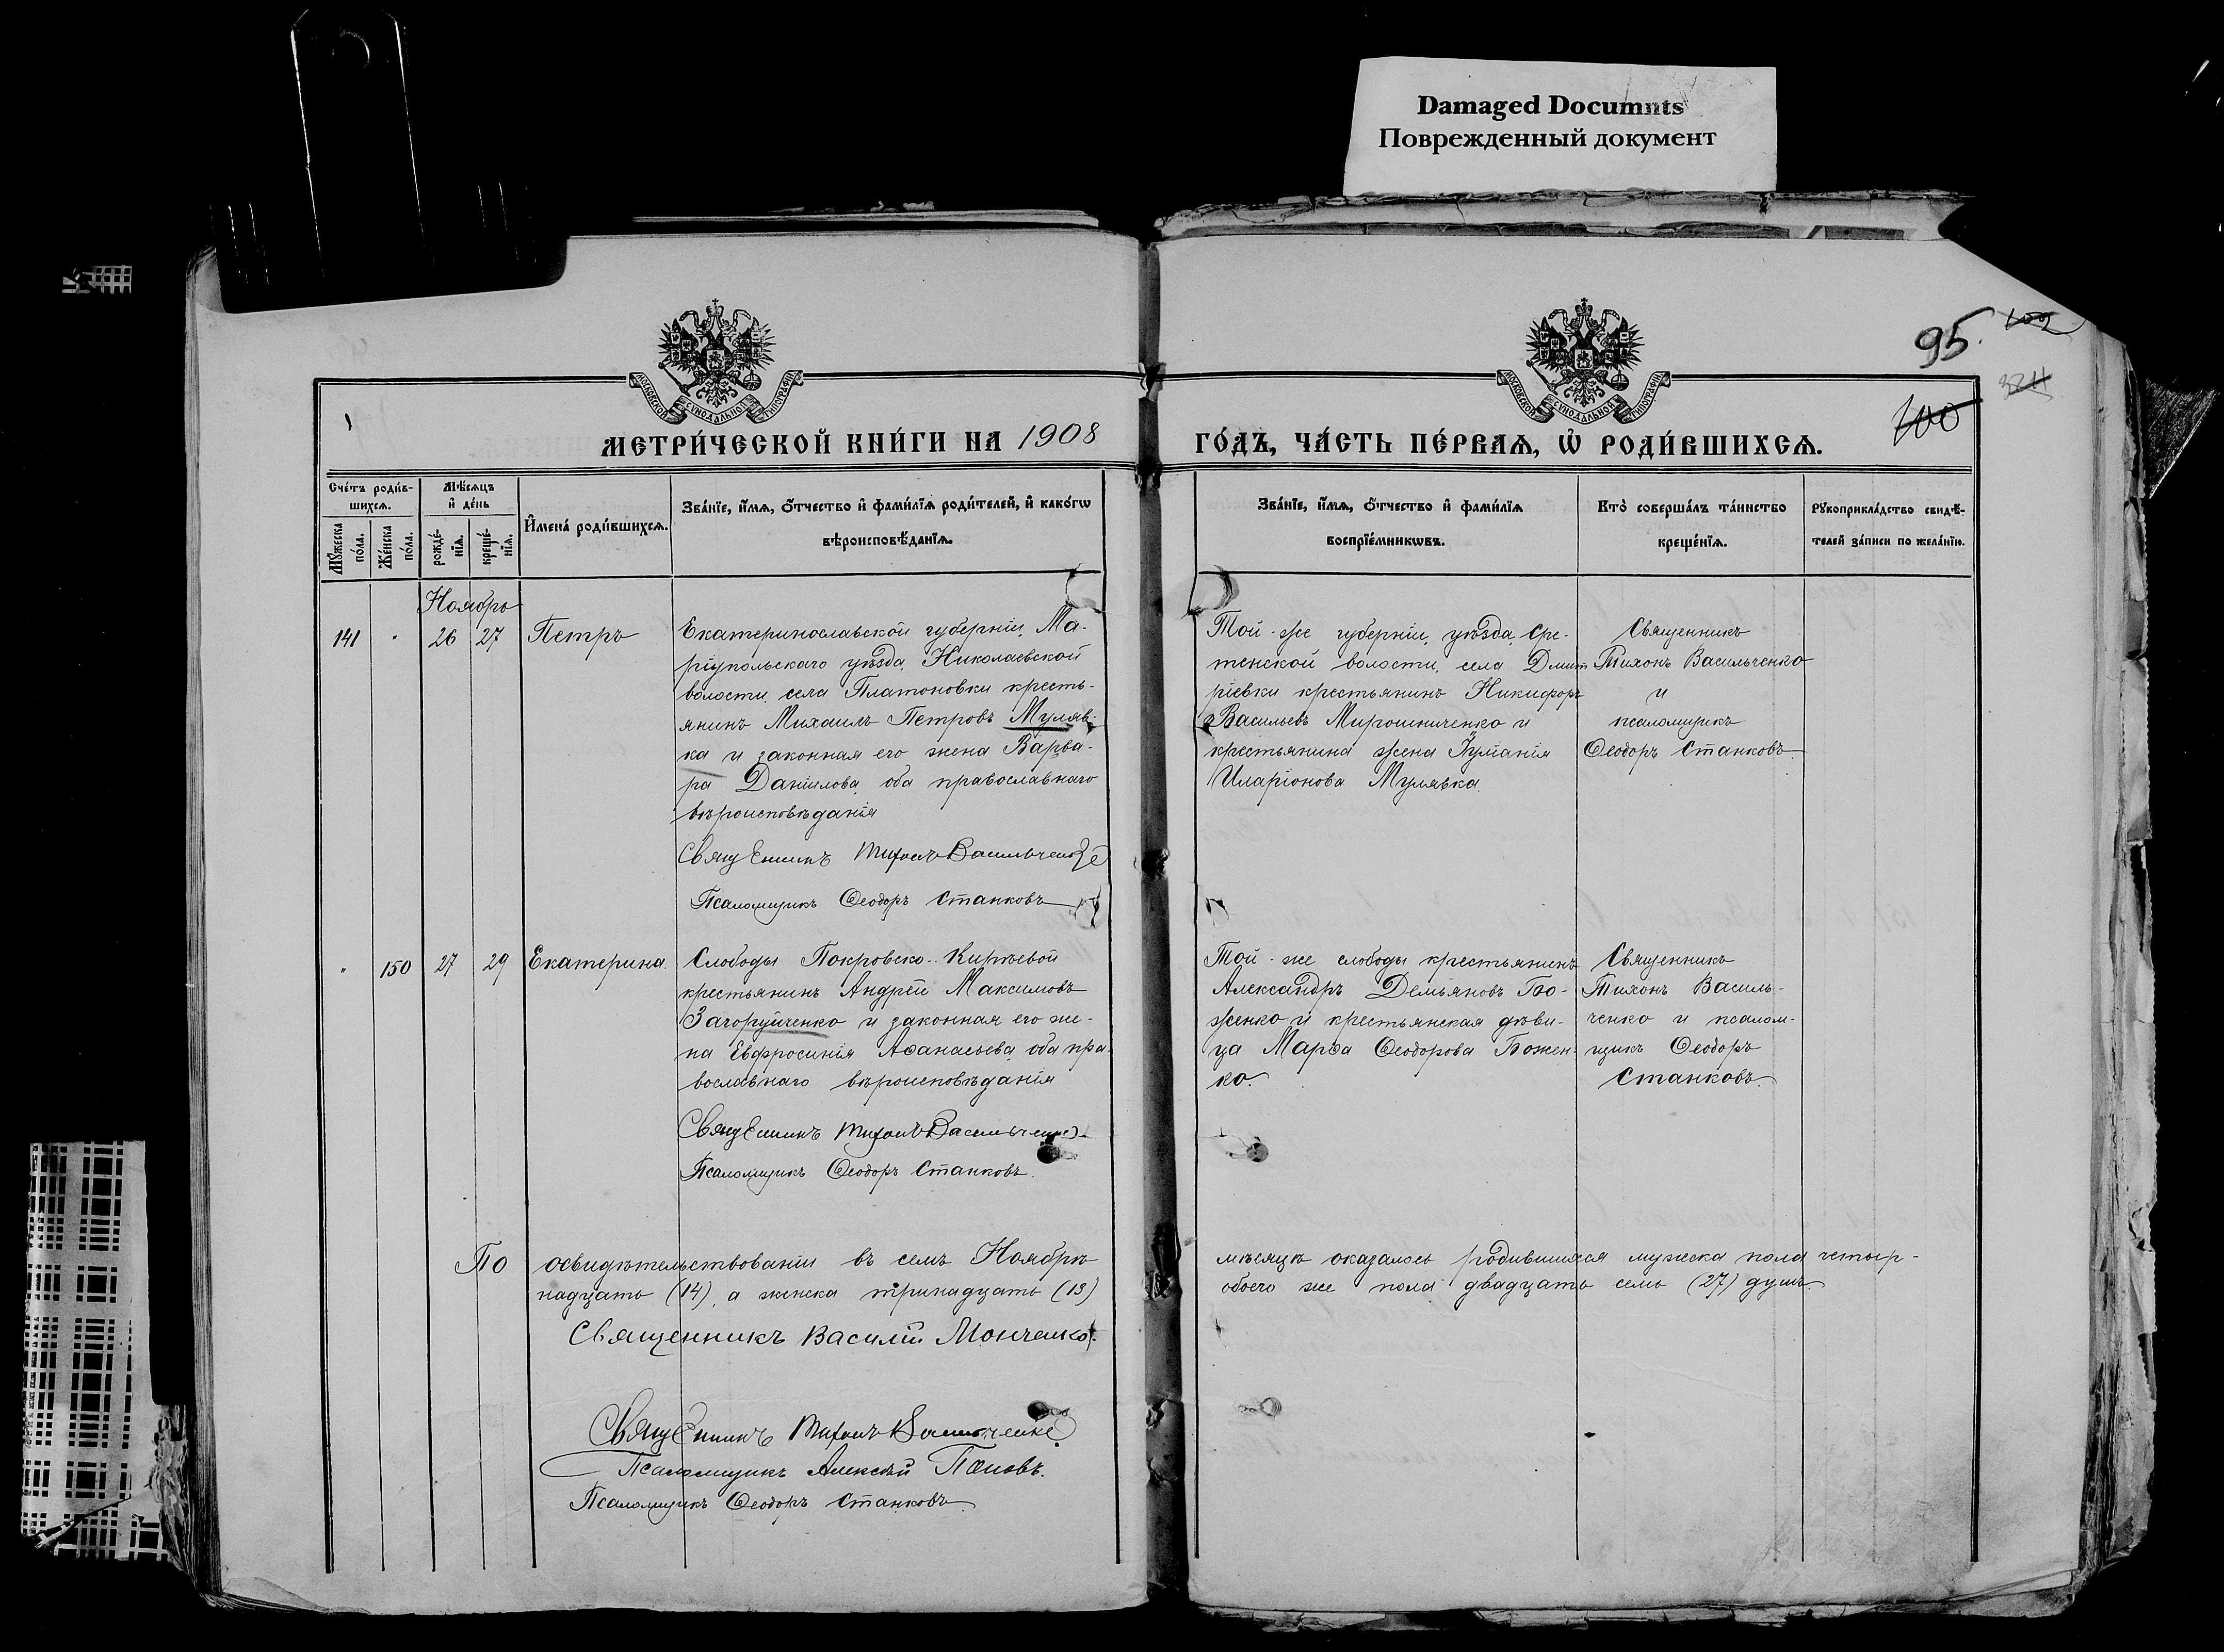 Damaged Documnts
Поврежденный документ
95.
102
100
МОСКОВСКОЙ СѴНОДАЛЬНОЙ ТИПОГРАФІИ
МОСКОВСКОЙ СѴНОДАЛЬНОЙ ТИПОГРАФІИ
МЕТРИ́ЧЕСКОЙ КНИ́ГИ НА 1908
ГО́ДЪ, ЧА́СТЬ ПЕ́РВАѦ, Ѡ҆ РОДИ́ВШИХСѦ.
Сче́тъ роди́в-
шихсѧ.
Мꙋ́жеска
по́ла.
Же́нска
по́ла.
Мѣ́сѧцъ
и҆ де́нь
рожде́-
нїѧ.
креще́-
нїѧ.
И҆мена̀ роди́вшихсѧ.
Зва́нїе, и҆́мѧ, ѻ҆́тчество и҆ фами́лїѧ роди́телей, и҆ како́гѡ
вѣроисповѣ́данїѧ.
Зва́нїе, и҆́мѧ, ѻ҆́тчество и҆ фами́лїѧ
воспрїе́мникѡвъ.
Кто̀ соверша́лъ та́инство
креще́нїѧ.
Рꙋкоприкла́дство свидѣ́-
телей за́писи по жела́нїю.
Ноябрь
141 " 26 27 Петръ
Екатеринославской губерніи, Ма-
ріупольскаго уѣзда, Николаевской
волости, села Платоновки кресть-
янинъ Михаилъ Петровъ Муляв-
ка и законная его жена Варва-
ра Даніилова, оба православнаго
вѣроисповѣданія
Священникъ Тихонъ Васильченко
Псаломщикъ Ѳеодоръ Станковъ
Той-же губерніи, уѣзда, Сре-
тенской волости, села Дмит
ріевки крестьянинъ Никифоръ
Васильевъ Мирошниченко и
крестьянина жена Іуліанія
Иларіонова Мулявка.
Священникъ
Тихонъ Васильченко
и
псаломщикъ
Ѳеодоръ Станковъ.
" 150 27 29 Екатерина.
Слободы Покровско-Кирѣевой
крестьянинъ Андрей Максимовъ
Загоруйченко и законная его же-
на Евфросинія Аѳанасьева, оба пра-
вославнаго вѣроисповѣданія
Священникъ Тихонъ Васильченко
Псаломщикъ Ѳеодоръ Станковъ.
Той-же слободы крестьянинъ
Александръ Демьяновъ Бо-
женко и крестьянская дѣви-
ца Марѳа Ѳеодорова Божен-
ко.
Священникъ
Тихонъ Василь-
ченко и псалом-
щикъ Ѳеодоръ
Станковъ.
По освидѣтельствованіи въ семъ Ноябрѣ мѣсяцѣ оказалось родившихся мужеска пола четыр-
надцать (14), а женска тринадцать (13) обоего же пола двадцать семь (27) душъ.
Священникъ Василій Монченко.
Священникъ Тихонъ Васильченко
Псаломщикъ Алексѣй Поповъ.
Псаломщикъ Ѳеодоръ Станковъ.